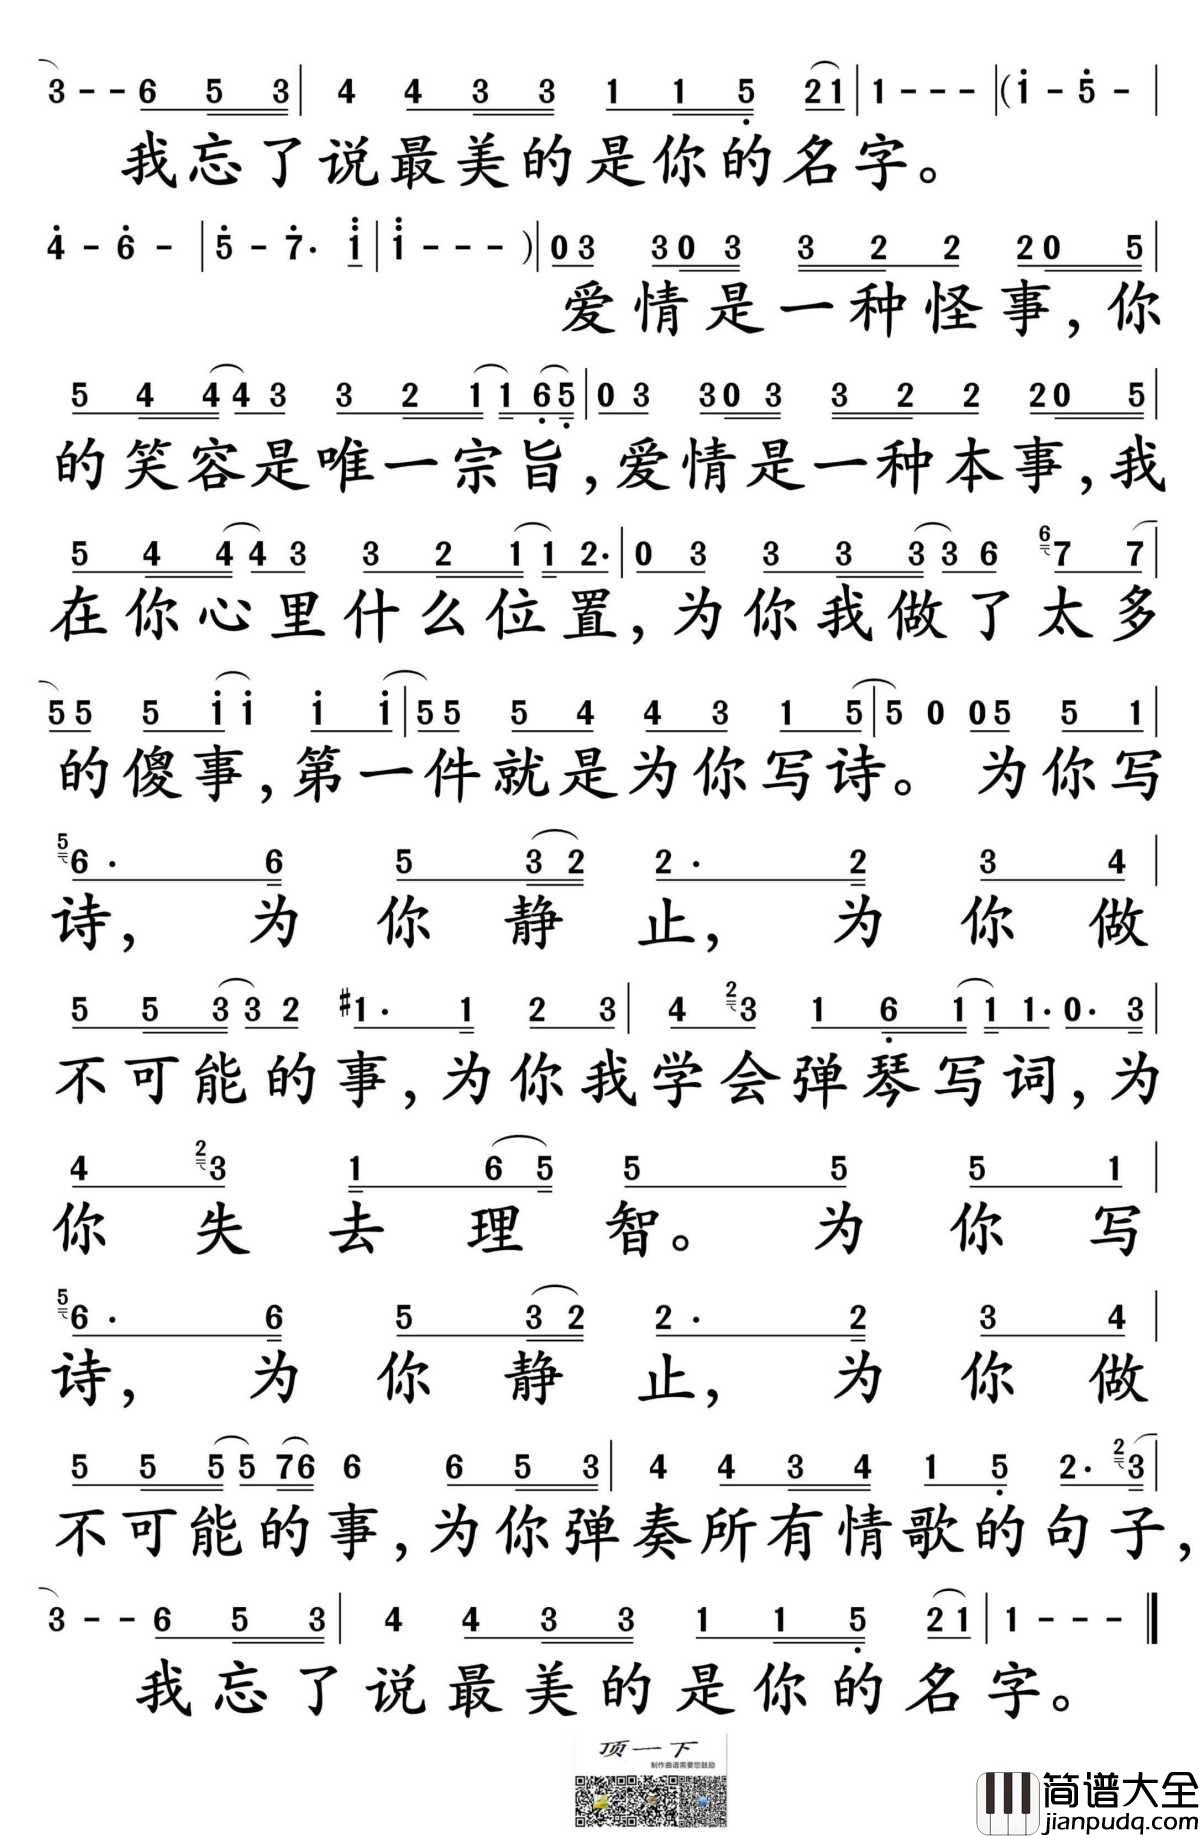 3 - - 6 5 3 | 4 4 3 3 1 1 5 2 1 | 1 - - - | ( i - 5 -  |
我忘了说最美的是你的名字。
4 - 6 - | 5 - 7 . i | i - - - ) | 0 3 3 0 3 3 2 2 2 0 5 |
爱情是一种怪事,你
5 4 4 4 3 3 2 1 1 6 5 | 0 3 3 0 3 3 2 2 2 0 5 |
的笑容是唯一宗旨,爱情是一种本事,我
5 4 4 4 3 3 2 1 1 2 . | 0 3 3 3 3 3 6 6 7 7 |
在你心里什么位置,为你我做了太多
5 5 5 i i i i | 5 5 5 4 4 3 1 5 | 5 0 0 5 5 1 |
的傻事,第一件就是为你写诗。为你写
5 6 . 6 5 3 2 2 . 2 3 4 |
诗,为你静止,为你做
5 5 3 3 2 #1 . 1 2 3 | 4 2 3 1 6 1 1 1 . 0 . 3 |
不可能的事,为你我学会弹琴写词,为
4 2 3 1 6 5 5 5 5 1 |
你失去理智。为你写
5 6 . 6 5 3 2 2 . 2 3 4 |
诗,为你静止,为你做
5 5 5 5 7 6 6 6 5 3 | 4 4 3 4 1 5 2 . 2 3 |
不可能的事,为你弹奏所有情歌的句子,
3 - - 6 5 3 | 4 4 3 3 1 1 5 2 1 | 1 - - - ‖
我忘了说最美的是你的名字。
顶一下
制作曲谱需要您鼓励
简谱大全
jianpudq.com